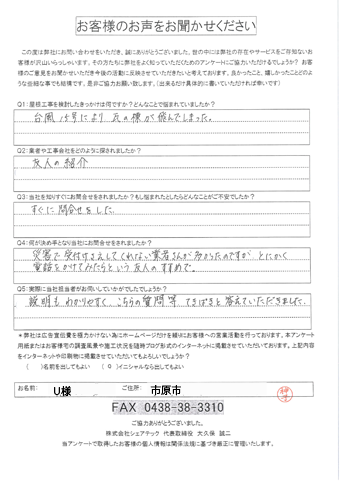 お客様のお声をお聞かせください
この度は弊社にお問い合わせをいただき、誠にありがとうございました。世の中には弊社の存在やサービスをご存知ないお
客様が沢山いらっしゃいます。その方たちに弊社をよく知っていただくためのアンケートにご協力いただけるでしょうか？お
客様のご意見をお聞かせいただき今後の活動に反映させていただきたいと考えております。良かったこと、嬉しかったことどのよ
うな些細な事でも結構です。是非ご協力お願い致します。（出来るだけ具体的に書いていただければ幸いです）
Q1：屋根工事を検討したきっかけは何ですか？どんなことで悩まれていましたか？
台風15号により瓦の棟が飛んでしまった。
Q2：業者や工事会社をどのように探されましたか？
友人の紹介
Q3：当社を知りすぐにお問合せをされましたか？もし悩まれたとしたらどんなことがご不安でしたか？
すぐに問合せをした。
Q4：何が決め手となり当社にお問合せをされましたか？
災害で受付けさえしてくれない業者さんが多かったのですが、とにかく
電話をかけてみたらという友人のすすめで。
Q5：実際に当社担当者がお伺いしていかがでしたでしょうか？
説明もわかりやすく、こちらの質問等 てきぱきと答えていただきました。
＊弊社は広告宣伝費を極力かけない為にホームページだけを頼りにお客様への営業活動を行っております。本アンケート
用紙またはお客様宅の調査風景や施工状況を随時ブログ形式のインターネットに掲載させていただいております。上記内容
をインターネットや印刷物に掲載させていただいてもよろしいでしょうか？
（　）名前を出してもよい　（ O ）イニシャルなら出してもよい
お名前： U様　ご住所： 市原市
FAX 0438-38-3310
ご協力ありがとうございました。
株式会社シェアテック 代表取締役 大久保 誠二
当アンケートで取得したお客様の個人情報は関係法規に基づき厳正に管理いたします。